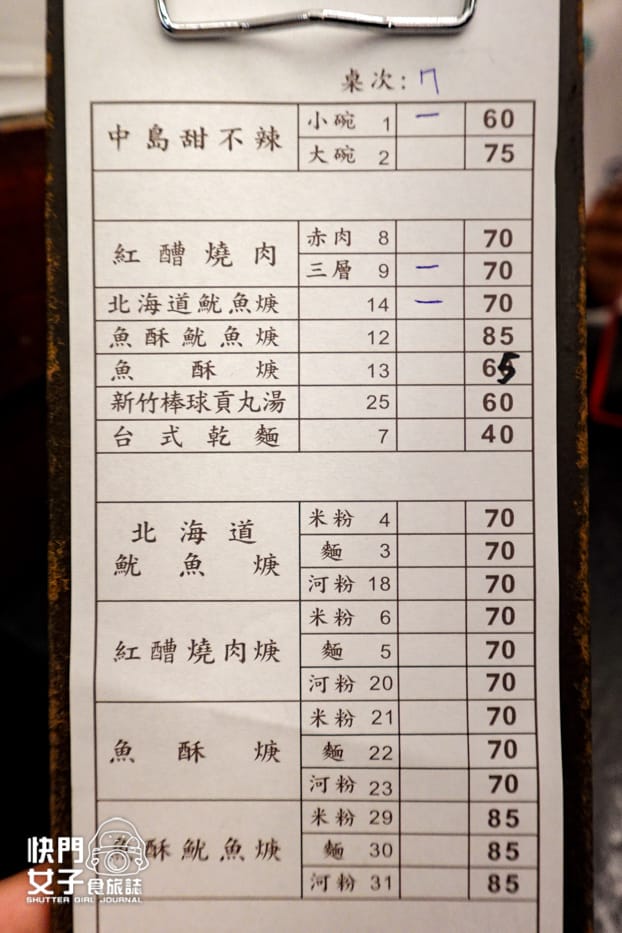 桌次: 7
中島甜不辣 小碗 1 一 60
大碗 2 75
紅醩燒肉 赤肉 8 70
三層 9 一 70
北海道魷魚焿 14 一 70
魚酥魷魚焿 12 85
魚酥焿 13 65
新竹棒球貢丸湯 25 60
台式乾麵 7 40
北海道
魷魚焿
米粉 4 70
麵 3 70
河粉 18 70
紅醩燒肉焿 米粉 6 70
麵 5 70
河粉 20 70
魚酥焿 米粉 21 70
麵 22 70
河粉 23 70
魚酥魷魚焿 米粉 29 85
麵 30 85
河粉 31 85
快門
女子食旅誌
SHUTTER GIRL JOURNAL